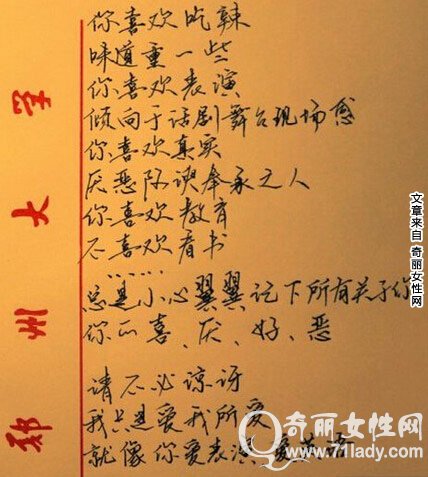 你喜欢吃辣
味道重一些
你喜欢表演
倾向于话剧舞台现场感
你喜欢真实
厌恶阿谀奉承之人
你喜欢教育
不喜欢看书
……
总是小心翼翼记下所有关于你
你的喜、厌、好、恶
请不必惊讶
我只是爱我所爱
就像你爱表演 爱
郑州大学
文章来自 奇丽女性网
奇丽女性网
www.71lady.com